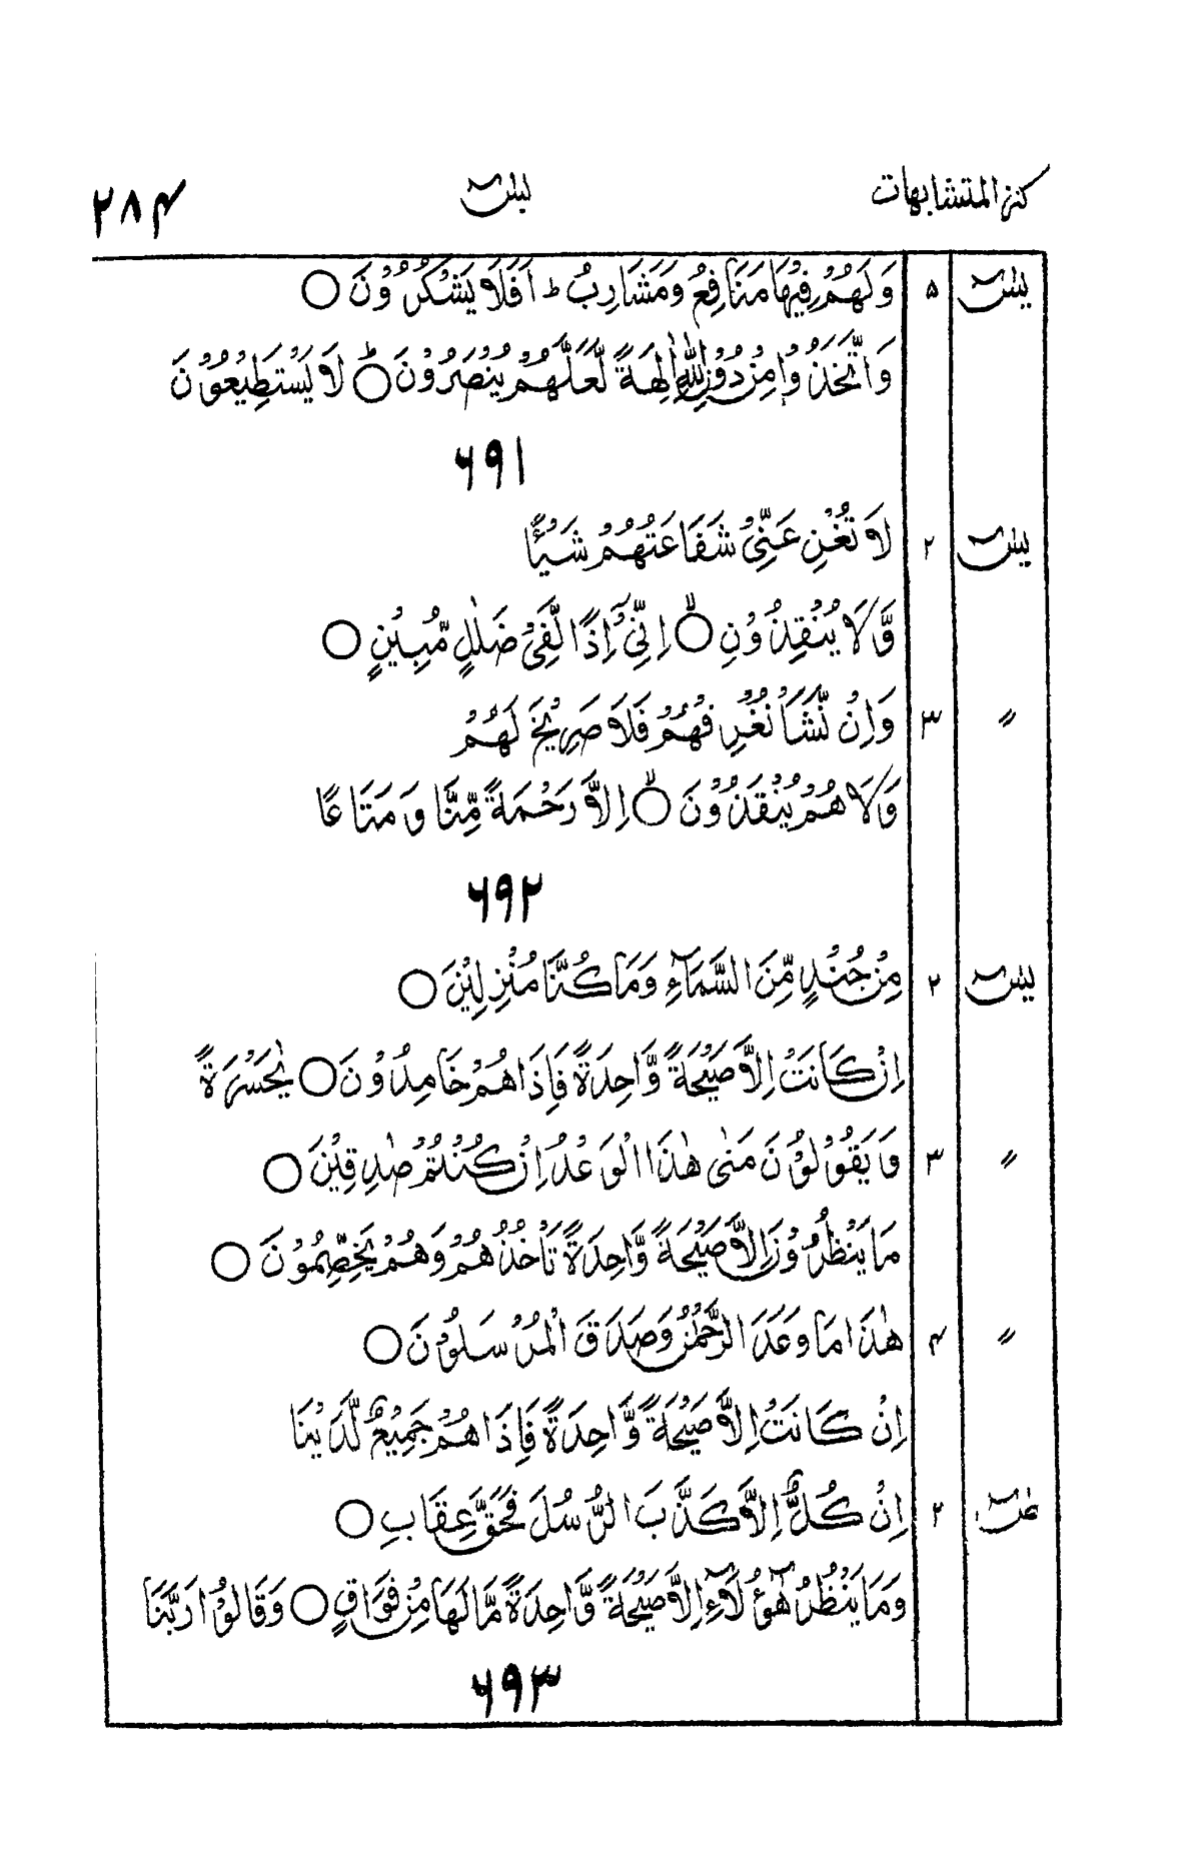 كنز المتشابهات يٰسٓ ۲۸۴
يٰسٓ ۵ وَلَهُمْ فِيْهَا مَنَافِعُ وَمَشَارِبُ ط اَفَلَا يَشْكُرُوْنَ ○
وَاتَّخَذُوْا مِنْ دُوْنِ اللّٰهِ اٰلِهَةً لَّعَلَّهُمْ يُنْصَرُوْنَ ○ؕ لَا يَسْتَطِيْعُوْنَ
۶۹۱
يٰسٓ ۲ لَا تُغْنِ عَنِّيْ شَفَاعَتُهُمْ شَيْـًٔا
وَّلَا يُنْقِذُوْنِ ○ۙ اِنِّيْٓ اِذًا لَّفِيْ ضَلٰلٍ مُّبِيْنٍ ○
〃 ۳ وَاِنْ نَّشَاْ نُغْرِقْهُمْ فَلَا صَرِيْخَ لَهُمْ
وَلَا هُمْ يُنْقَذُوْنَ ○ۙ اِلَّا رَحْمَةً مِّنَّا وَمَتَاعًا
۶۹۲
يٰسٓ ۲ مِنْ جُنْدٍ مِّنَ السَّمَآءِ وَمَا كُنَّا مُنْزِلِيْنَ ○
اِنْ كَانَتْ اِلَّا صَيْحَةً وَّاحِدَةً فَاِذَا هُمْ خَامِدُوْنَ ○ يٰحَسْرَةً
〃 ۳ وَيَقُوْلُوْنَ مَتٰى هٰذَا الْوَعْدُ اِنْ كُنْتُمْ صٰدِقِيْنَ ○
مَا يَنْظُرُوْنَ اِلَّا صَيْحَةً وَّاحِدَةً تَاْخُذُهُمْ وَهُمْ يَخِصِّمُوْنَ ○
〃 ۴ هٰذَا مَا وَعَدَ الرَّحْمٰنُ وَصَدَقَ الْمُرْسَلُوْنَ ○
اِنْ كَانَتْ اِلَّا صَيْحَةً وَّاحِدَةً فَاِذَا هُمْ جَمِيْعٌ لَّدَيْنَا
صٓ ۲ اِنْ كُلٌّ اِلَّا كَذَّبَ الرُّسُلَ فَحَقَّ عِقَابِ ○
وَمَا يَنْظُرُ هٰٓؤُلَآءِ اِلَّا صَيْحَةً وَّاحِدَةً مَّا لَهَا مِنْ فَوَاقٍ ○ وَقَالُوْا رَبَّنَا
۶۹۳